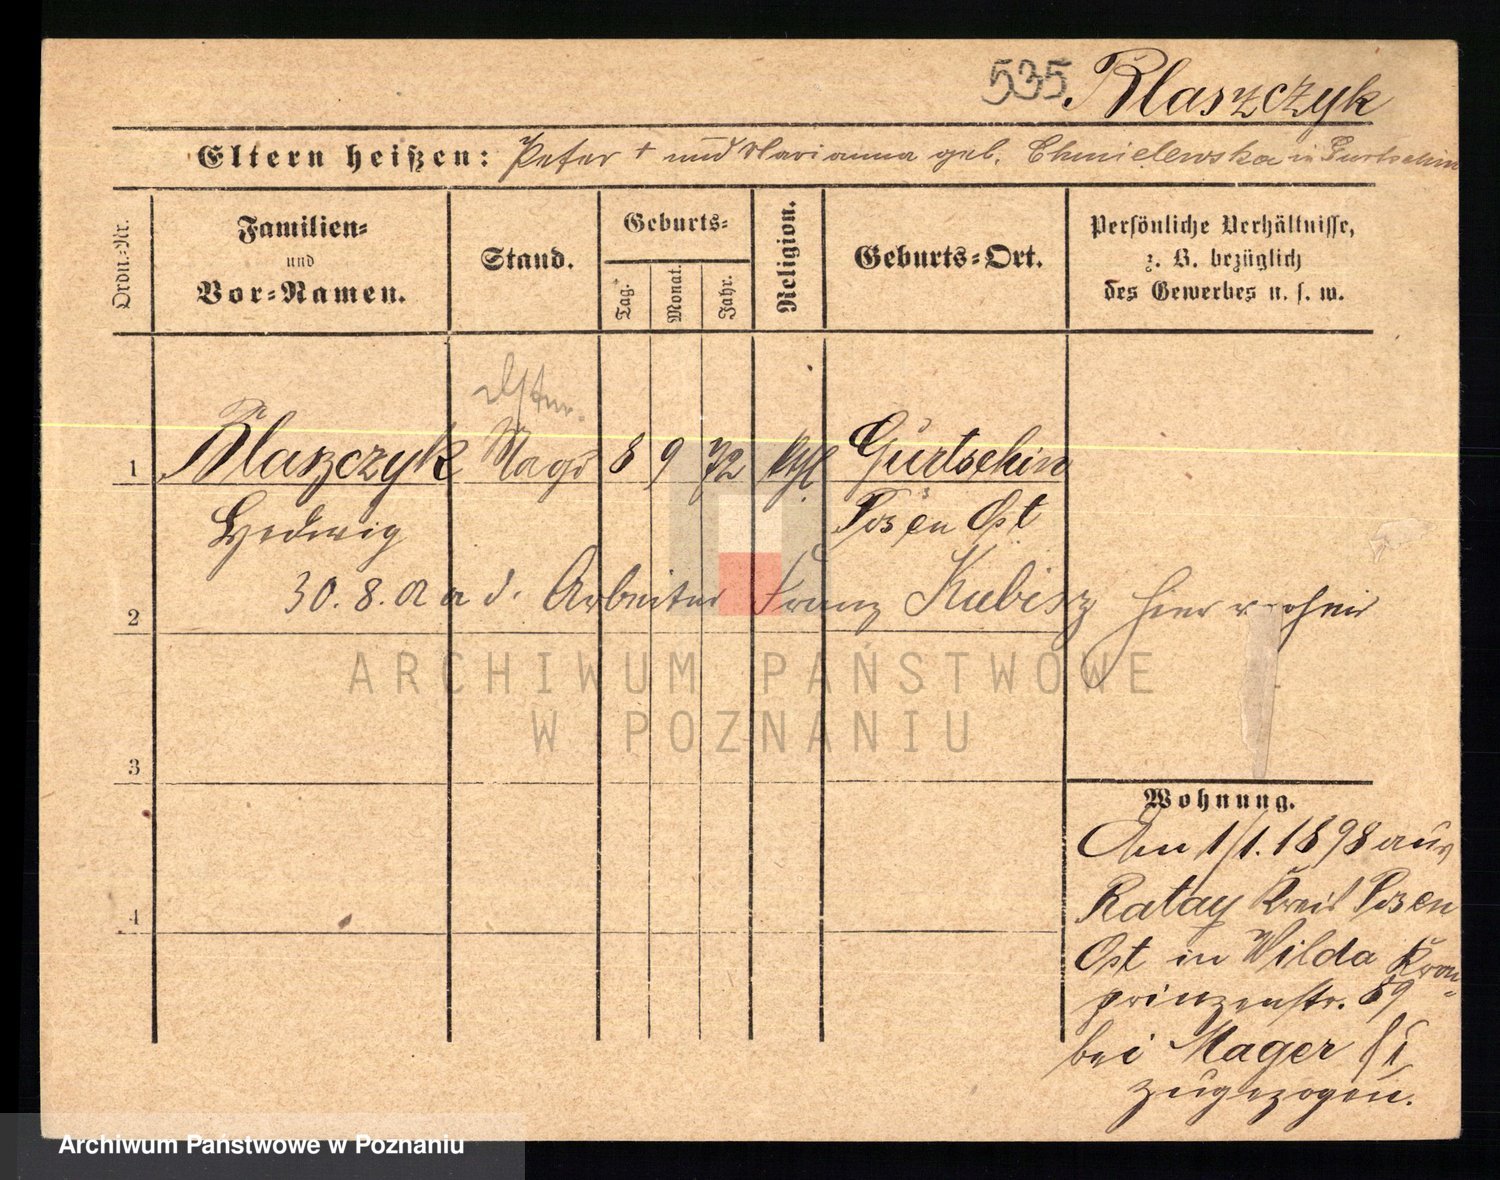 535 Blaszczyk
Eltern heißen: Peter + und Marianna geb. Chmielewska in Gurtschin
Ordn.-Nr.
Familien-
und
Vor-Namen.
Stand.
Geburts-
Tag.
Monat.
Jahr.
Religion.
Geburts-Ort.
Persönliche Verhältnisse,
z. B. bezüglich
des Gewerbes u. s. w.
1 Blaszczyk Magd 8 9 72 kthl Gurtschin
Hedwig Posen Ost
2 30. 8. Arbeiter Franz Kubisz hier verheir
ARCHIWUM PAŃSTWOWE
W POZNANIU
3
Wohnung.
Am 1/1. 1898 aus
Ratay Kreis Posen
Ost in Wilda Kron-
prinzenstr. 89
bei Mager
zugezogen.
4
Archiwum Państwowe w Poznaniu